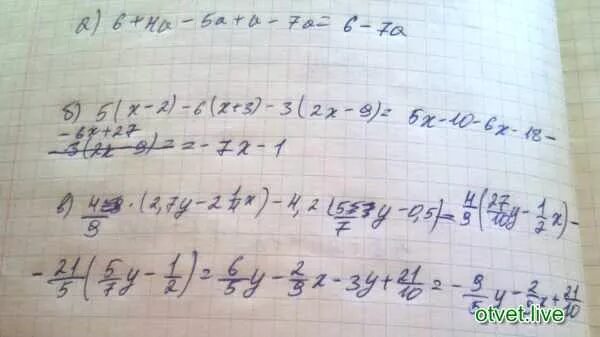 а) 6+4а-5а+а-7а= 6-7а
б) 5(x-2)-6(x+3)-3(2x-9)= 5x-10-6x-18-
-6x+27
= -7x-1
в) 4/9 · (2,7y-2 x)-4,2(5/7 y-0,5)= 4/9(27/10 y-1/2 x)-
-21/5(5/7 y-1/2)= 6/5 y-2/9 x-3y+21/10= -9/5 y-2/9 x+21/10
otvet.live